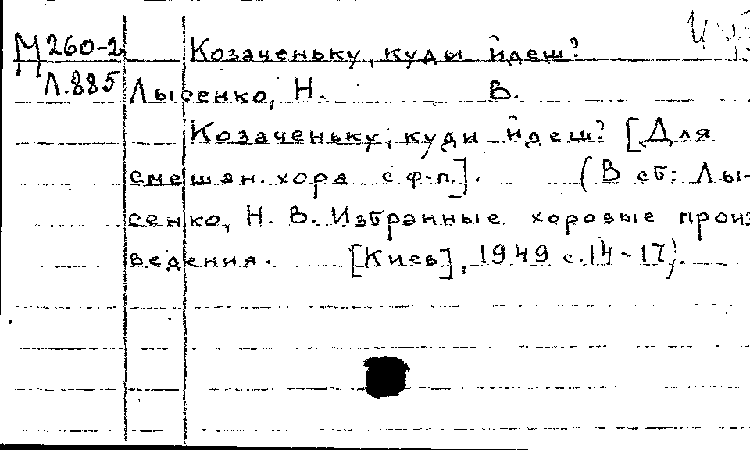 М 260-2 Козаченьку, куды йдеш?
Л.885 Лысенко, Н. В.
Козаченьку, куди йдеш? [Для
смешан. хора с ф-п.]. (В сб: Лы-
сенко, Н. В. Избранные хоровые произ
ведения. [Киев], 1949 с.14-17).